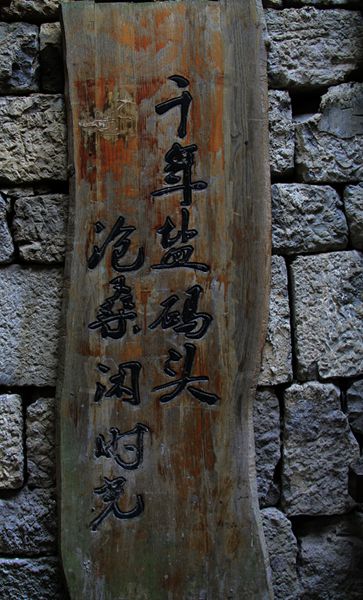 千年盐码头
沧桑闲时光